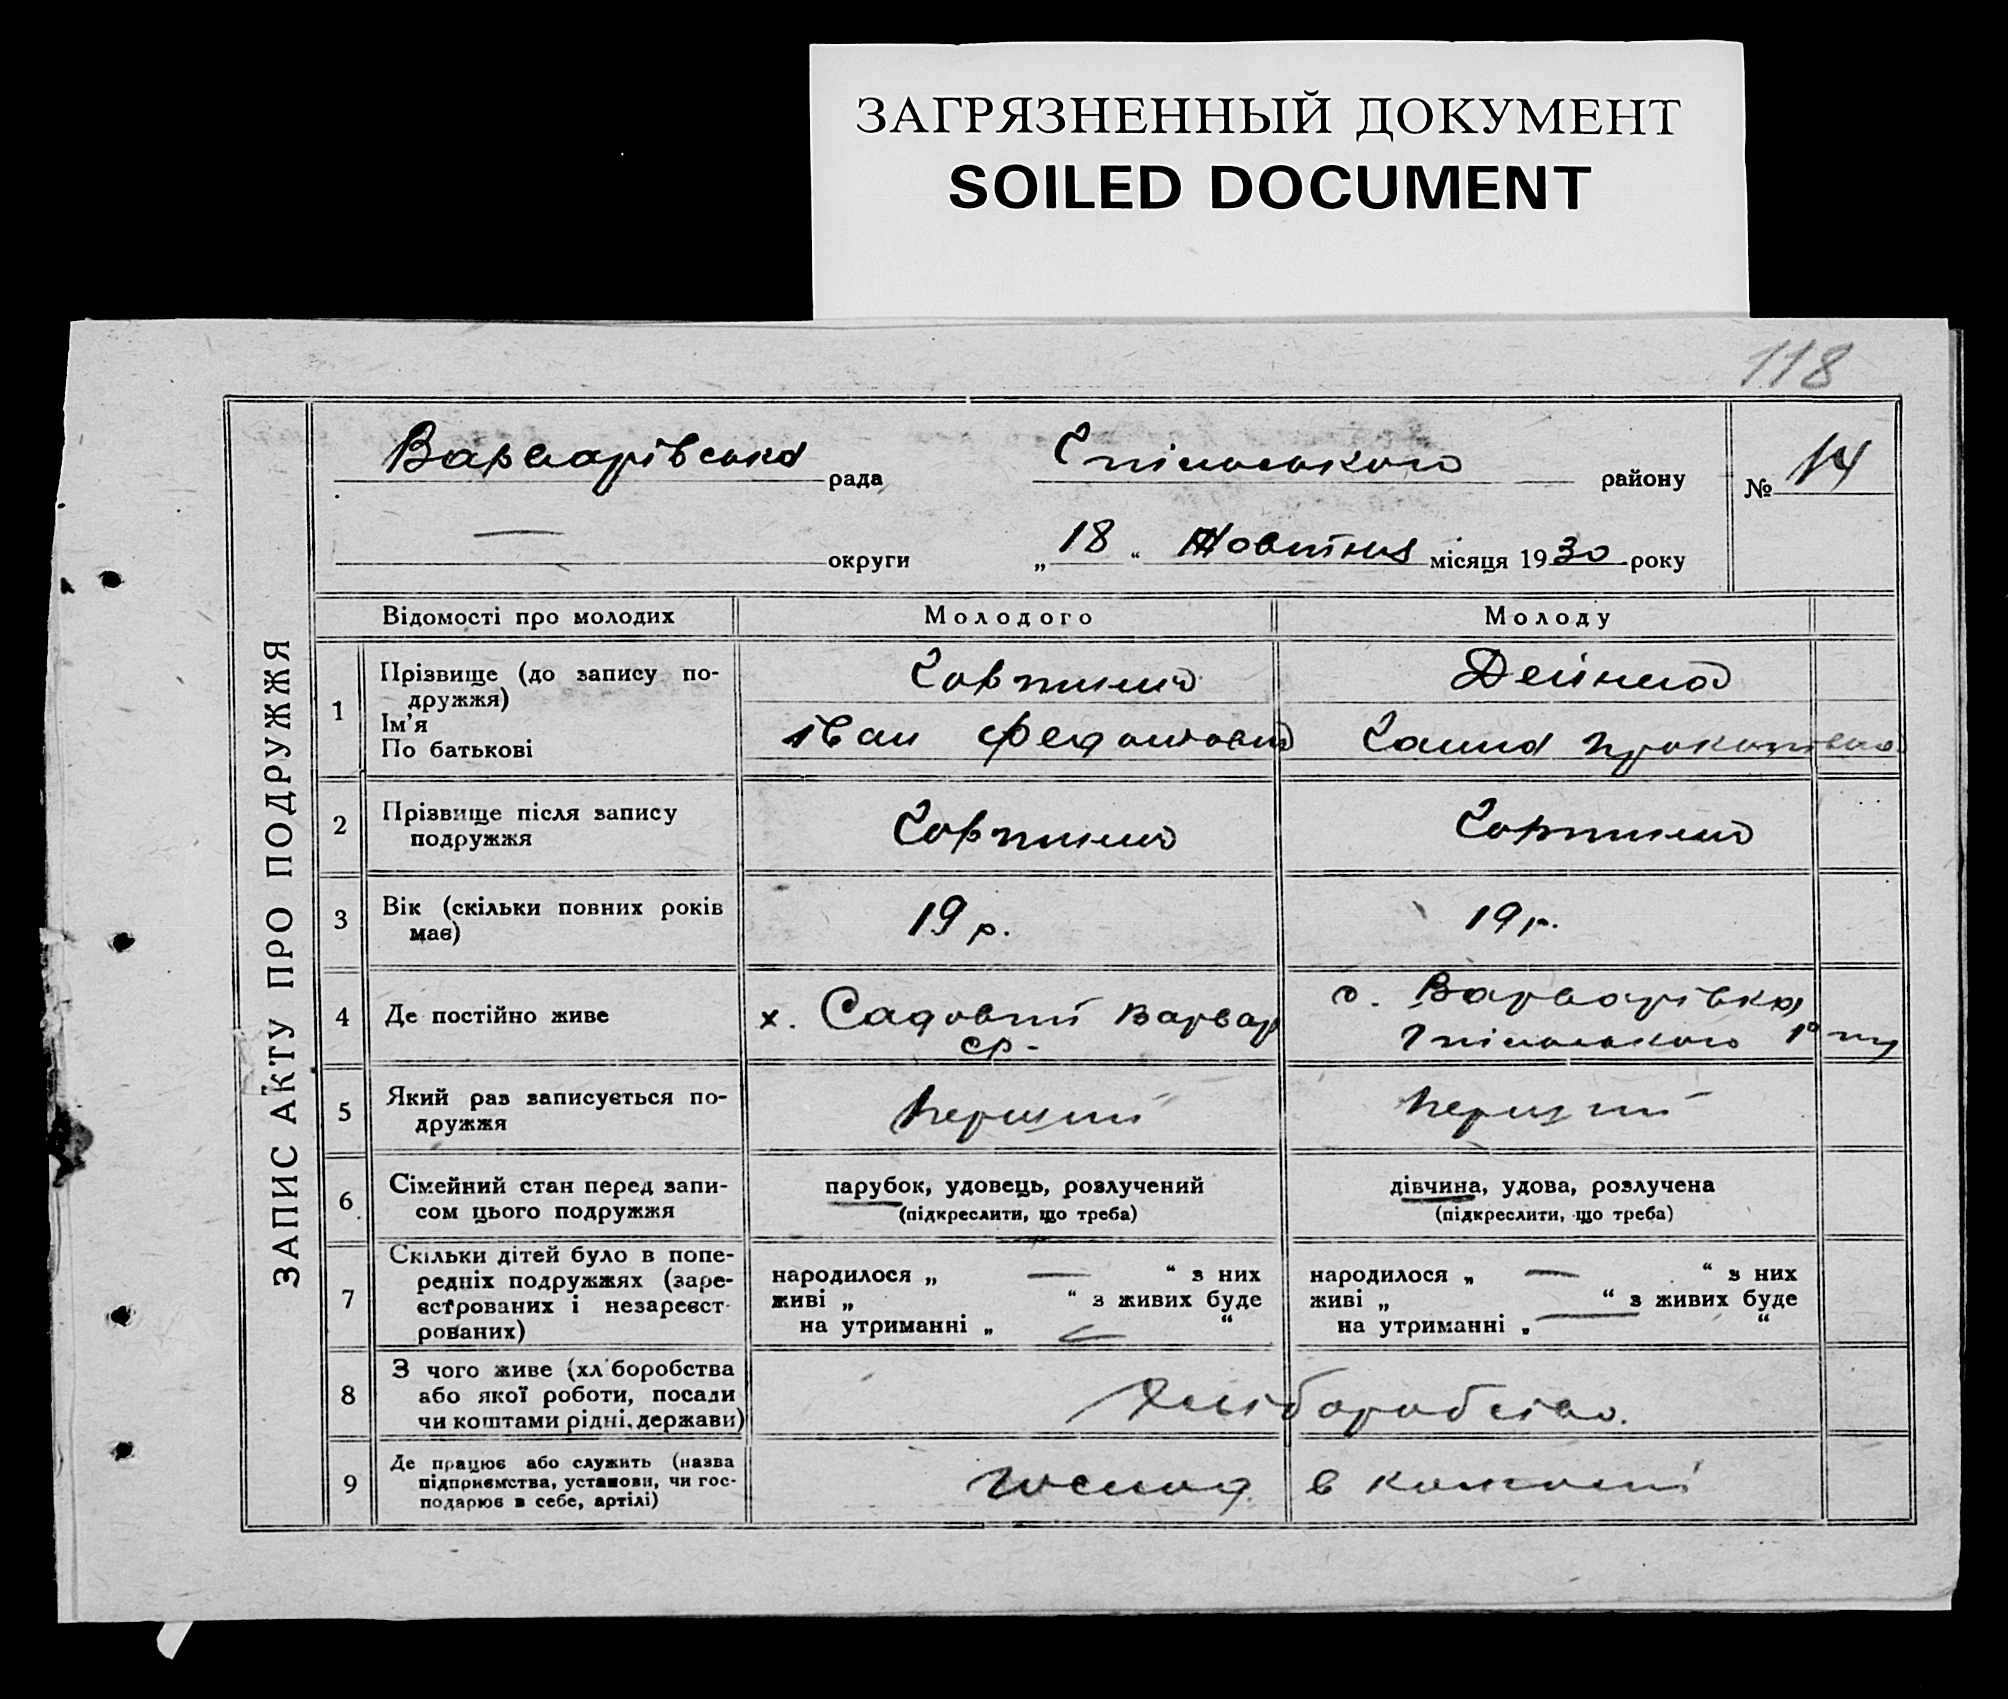 ЗАГРЯЗНЕННЫЙ ДОКУМЕНТ
SOILED DOCUMENT
118
ЗАПИС АКТУ ПРО ПОДРУЖЖЯ
Варварівська рада району № 14
— округи „18“ Жовтня місяця 1930 року
Відомості про молодих Молодого Молоду
1 Прізвище (до запису по-
дружжя)
Ім'я
По батькові
Дейнега
Іван
Ганна Прокопівна
2 Прізвище після запису
подружжя
3 Вік (скільки повних років
має)
19 р. 19 р.
4 Де постійно живе
х. Садовий Варвар
ср.
с. Варварівка
5 Який раз записується по-
дружжя
перший перший
6 Сімейний стан перед запи-
сом цього подружжя
парубок, удовець, розлучений
(підкреслити, що треба)
дівчина, удова, розлучена
(підкреслити, що треба)
7 Скільки дітей було в попе-
редніх подружжях (заре-
єстрованих і незареєст-
рованих)
народилося „ — “ з них
живі „ “ з живих буде
на утриманні „ “
народилося „ — “ з них
живі „ “ з живих буде
на утриманні „ — “
8 З чого живе (хліборобства
або якої роботи, посади
чи коштами рідні, держави)
Хліборобство.
9 Де працює або служить (назва
підприємства, установи, чи гос-
подарює в себе, артілі)
господ. в